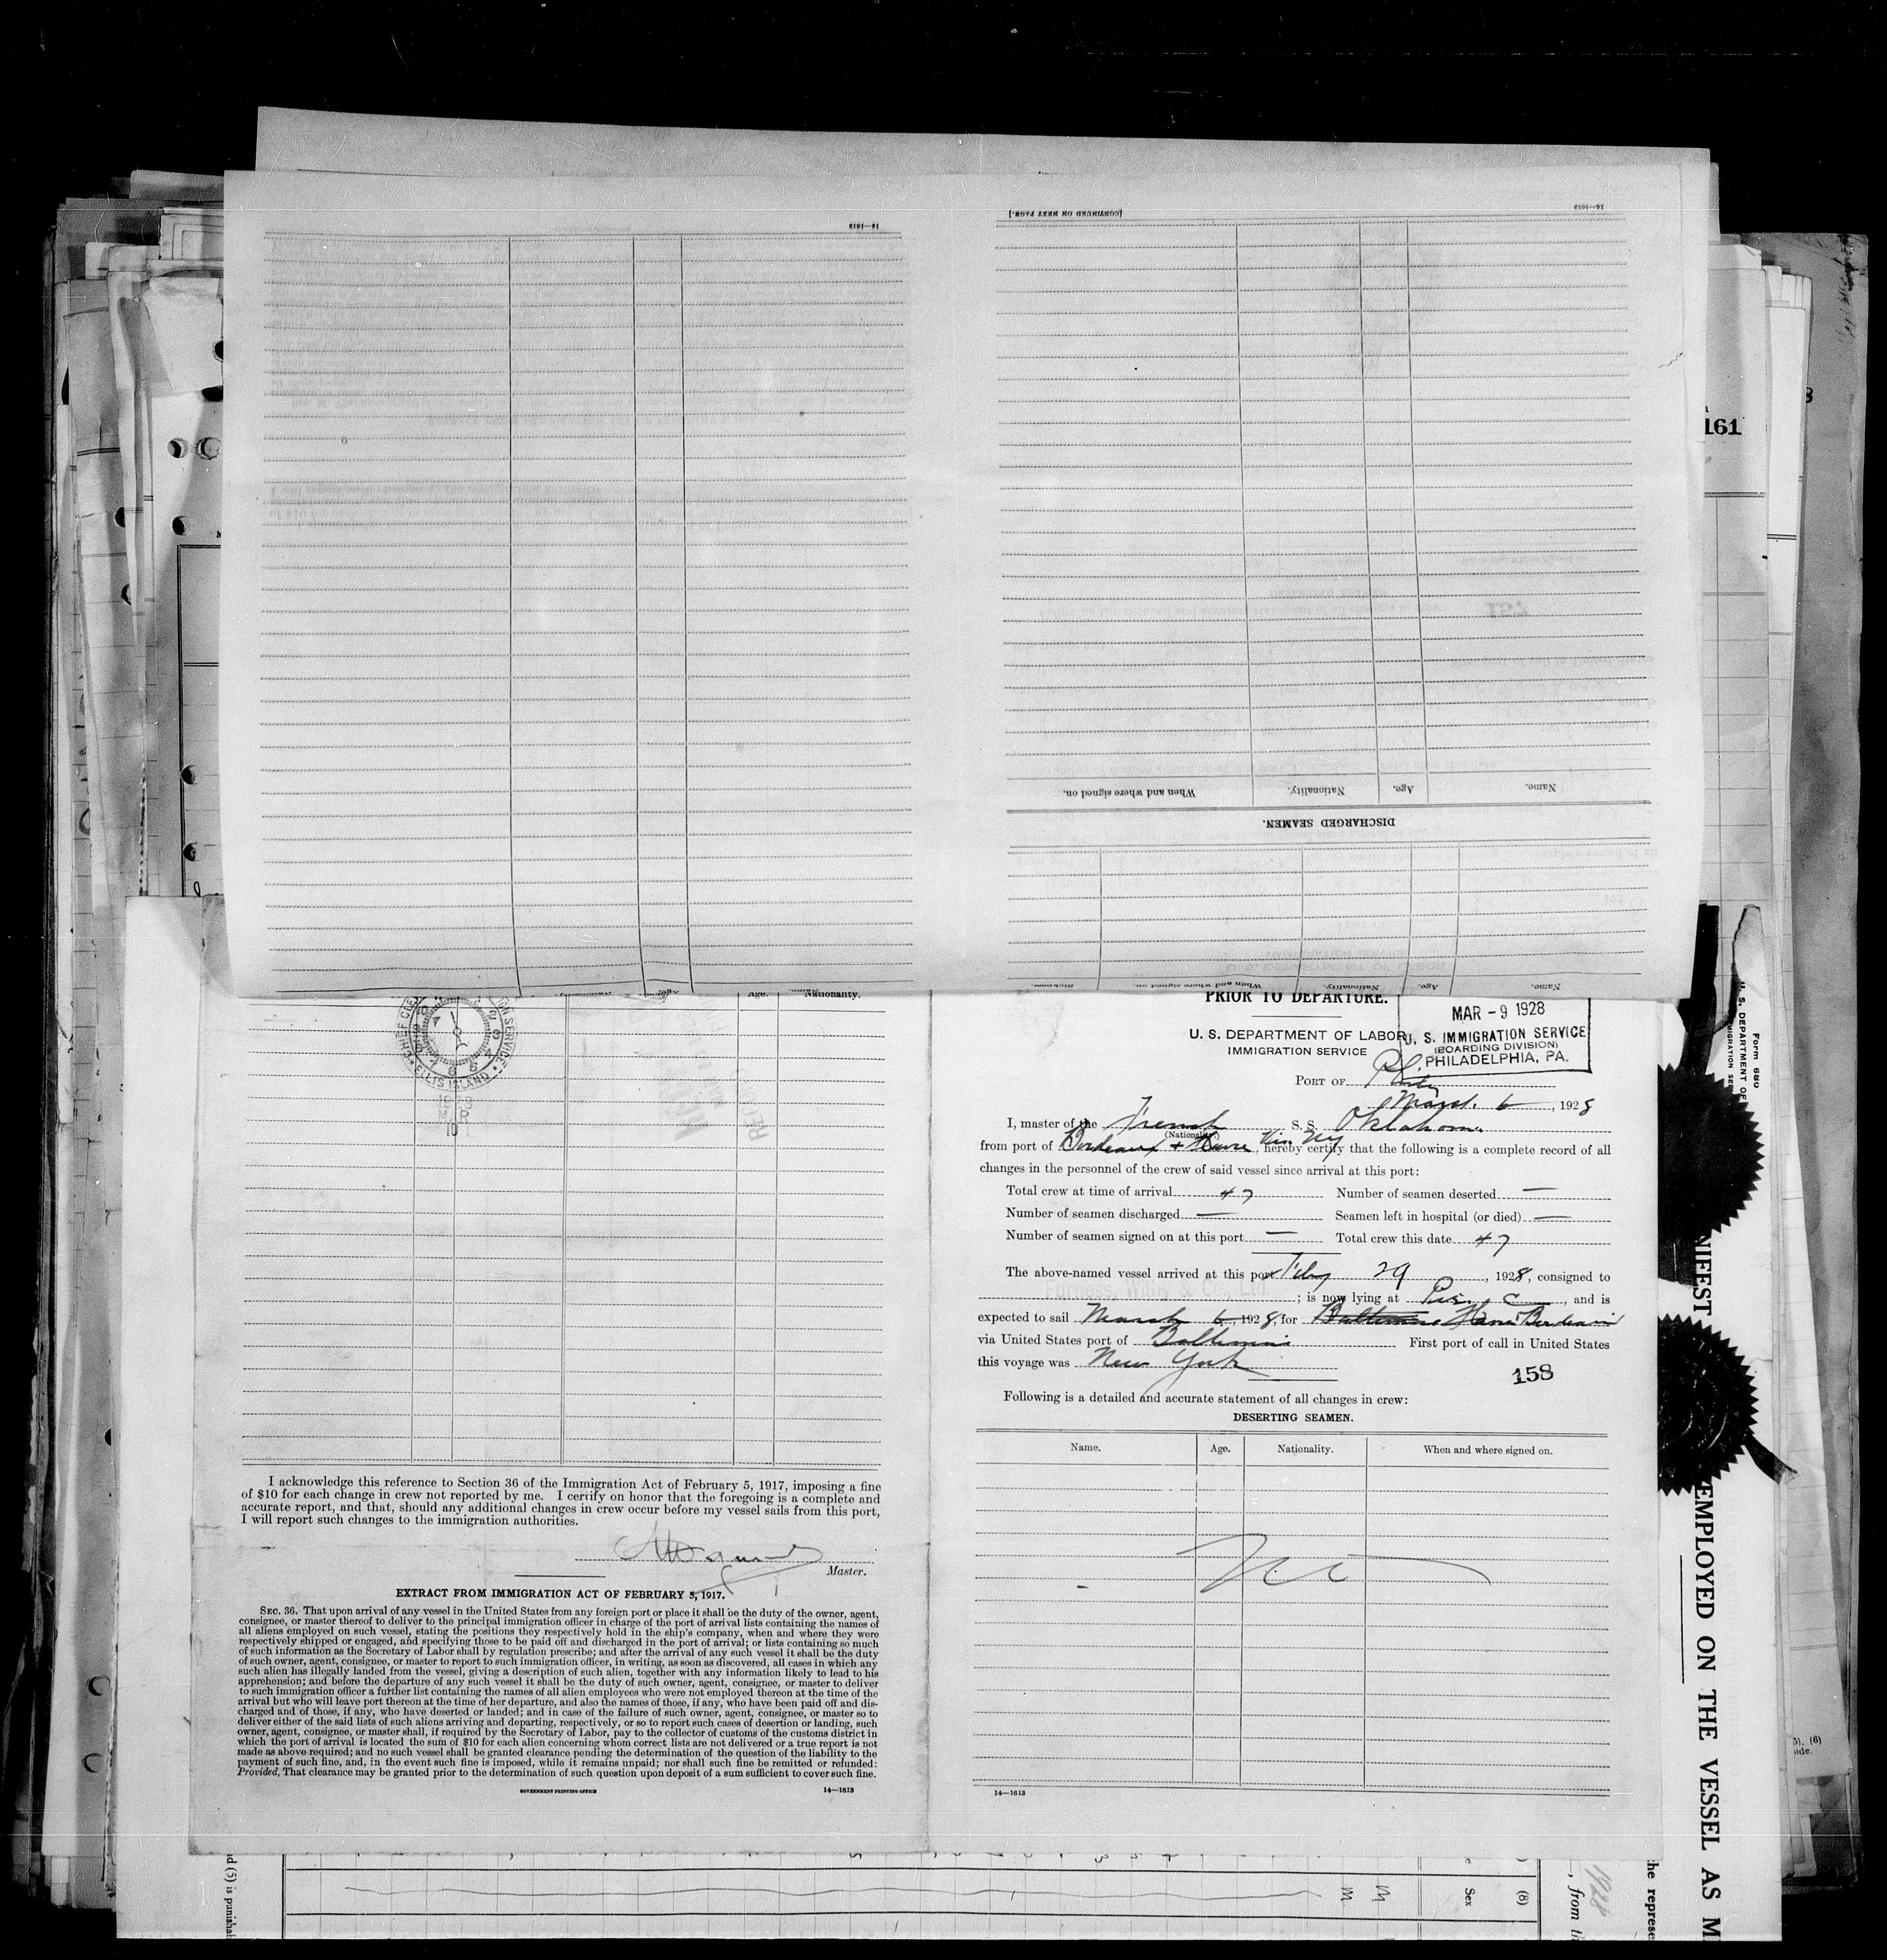 [CONTINUED ON NEXT PAGE.]
14—1613
14—1613
Name. Age. Nationality. When and where signed on.
DISCHARGED SEAMEN.
Name. Age. Nationality. When and where signed on. Sickness.
161
Age. Nationality.
CHIEF
ION SERVICE
ELLIS ISLAND
PRIOR TO DEPARTURE.
MAR - 9 1928
U. S. IMMIGRATION SERVICE
(BOARDING DIVISION)
PHILADELPHIA, PA.
U. S. DEPARTMENT OF LABOR
IMMIGRATION SERVICE
PORT OF Phila
March 6, 1928
I, master of the French S. S. Oklahoma
(Nationality)
from port of Bordeaux + Havre Via NY, hereby certify that the following is a complete record of all
changes in the personnel of the crew of said vessel since arrival at this port:
Total crew at time of arrival 47 Number of seamen deserted —
Number of seamen discharged — Seamen left in hospital (or died) —
Number of seamen signed on at this port — Total crew this date 47
The above-named vessel arrived at this port Feby 29, 1928, consigned to
; is now lying at Pier C, and is
expected to sail March 6, 1928, for Baltimore Havre Bordeaux
via United States port of Baltimore First port of call in United States
this voyage was New York
158
Following is a detailed and accurate statement of all changes in crew:
DESERTING SEAMEN.
Name. Age. Nationality. When and where signed on.
14—1613
I acknowledge this reference to Section 36 of the Immigration Act of February 5, 1917, imposing a fine
of $10 for each change in crew not reported by me. I certify on honor that the foregoing is a complete and
accurate report, and that, should any additional changes in crew occur before my vessel sails from this port,
I will report such changes to the immigration authorities.
Master.
EXTRACT FROM IMMIGRATION ACT OF FEBRUARY 5, 1917.
SEC. 36. That upon arrival of any vessel in the United States from any foreign port or place it shall be the duty of the owner, agent,
consignee, or master thereof to deliver to the principal immigration officer in charge of the port of arrival lists containing the names of
all aliens employed on such vessel, stating the positions they respectively hold in the ship's company, when and where they were
respectively shipped or engaged, and specifying those to be paid off and discharged in the port of arrival; or lists containing so much
of such information as the Secretary of Labor shall by regulation prescribe; and after the arrival of any such vessel it shall be the duty
of such owner, agent, consignee, or master to report to such immigration officer, in writing, as soon as discovered, all cases in which any
such alien has illegally landed from the vessel, giving a description of such alien, together with any information likely to lead to his
apprehension; and before the departure of any such vessel it shall be the duty of such owner, agent, consignee, or master to deliver
to such immigration officer a further list containing the names of all alien employees who were not employed thereon at the time of the
arrival but who will leave port thereon at the time of her departure, and also the names of those, if any, who have been paid off and dis-
charged and of those, if any, who have deserted or landed; and in case of the failure of such owner, agent, consignee, or master so to
deliver either of the said lists of such aliens arriving and departing, respectively, or so to report such cases of desertion or landing, such
owner, agent, consignee, or master shall, if required by the Secretary of Labor, pay to the collector of customs of the customs district in
which the port of arrival is located the sum of $10 for each alien concerning whom correct lists are not delivered or a true report is not
made as above required; and no such vessel shall be granted clearance pending the determination of the question of the liability to the
payment of such fine, and, in the event such fine is imposed, while it remains unpaid; nor shall such fine be remitted or refunded:
Provided, That clearance may be granted prior to the determination of such question upon deposit of a sum sufficient to cover such fine.
GOVERNMENT PRINTING OFFICE
14—1613
Form 680
U. S. DEPARTMENT OF
NIFEST
EMPLOYED ON THE VESSEL AS M
he represe
1928
, from th
(8)
Sex
M
M
d (5) is punishal